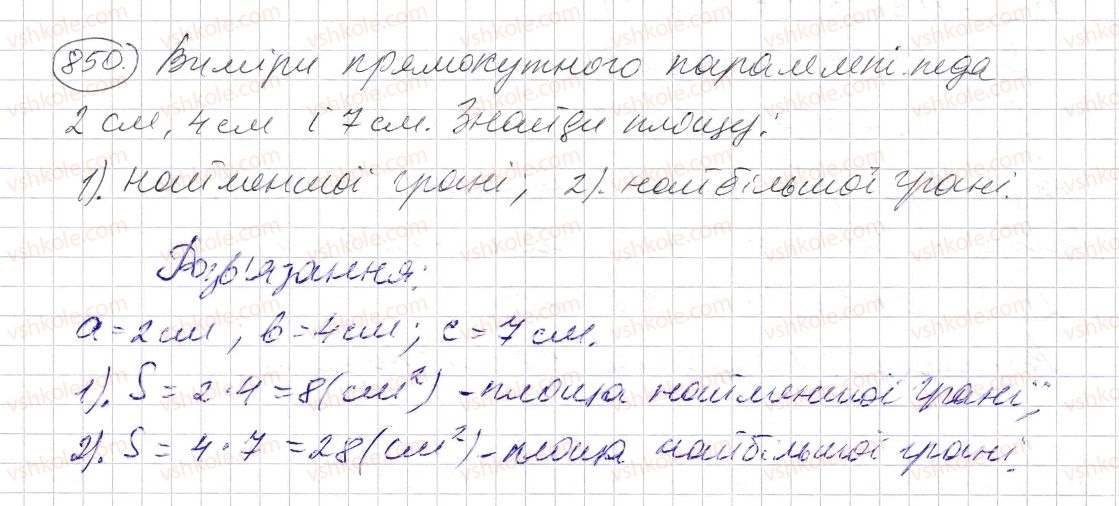 850. Виміри прямокутного паралелепіпеда
2 см, 4 см і 7 см. Знайди площу:
1). найменшої грані; 2). найбільшої грані.
Розв'язання:
a = 2 см, b = 4 см; c = 7 см.
1). S = 2 · 4 = 8 (см²) – площа найменшої грані;
2). S = 4 · 7 = 28 (см²) – площа найбільшої грані.
vshkole.com